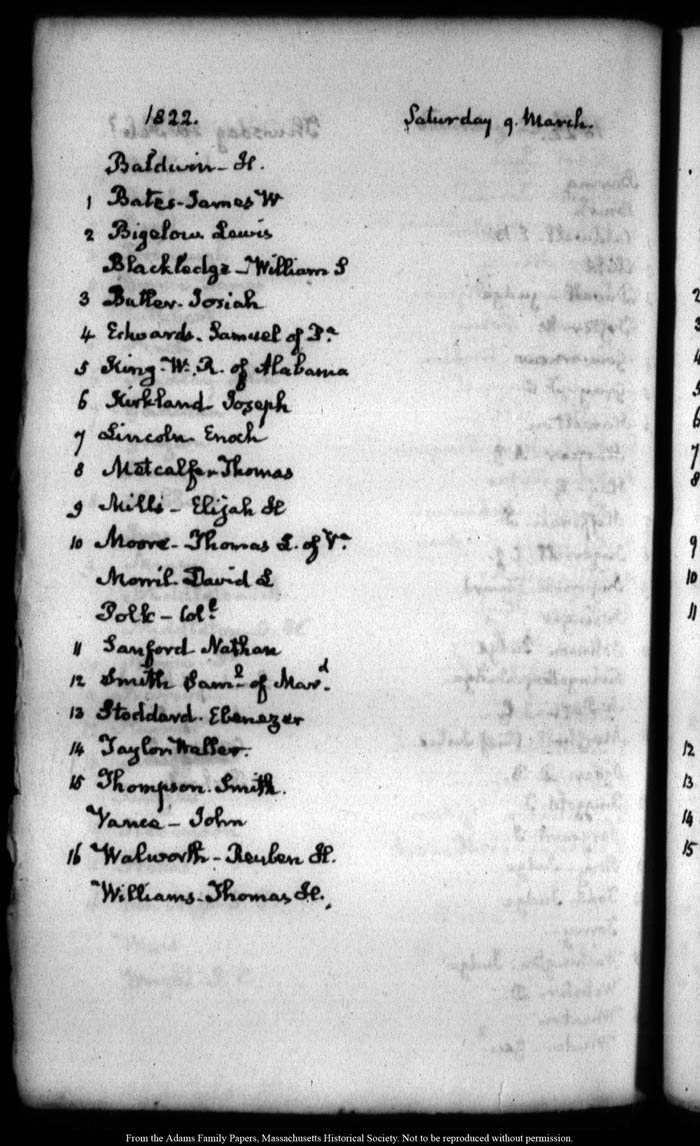 1822. Saturday 9. March.
Baldwin - H.
1 Bates - James W
2 Bigelow. Lewis
Blackledge - William S
3 Butler. Josiah
4 Edwards. Samuel of Pa
5 King - W. R. of Alabama
6 Kirkland - Joseph
7 Lincoln. Enoch
8 Metcalfe - Thomas
9 Mills - Elijah H
10 Moore - Thomas L. of Va
Morril - David L
Polk - Coll
11 Sanford Nathan
12 Smith Saml of Mard.
13 Stoddard. Ebenezer
14 Taylor Waller.
15 Thompson. Smith.
Vance - John
16 Walworth - Reuben H.
Williams - Thomas H.
2
3
4
5
6
7
8
9
10
11
12
13
14
15
From the Adams Family Papers, Massachusetts Historical Society. Not to be reproduced without permission.